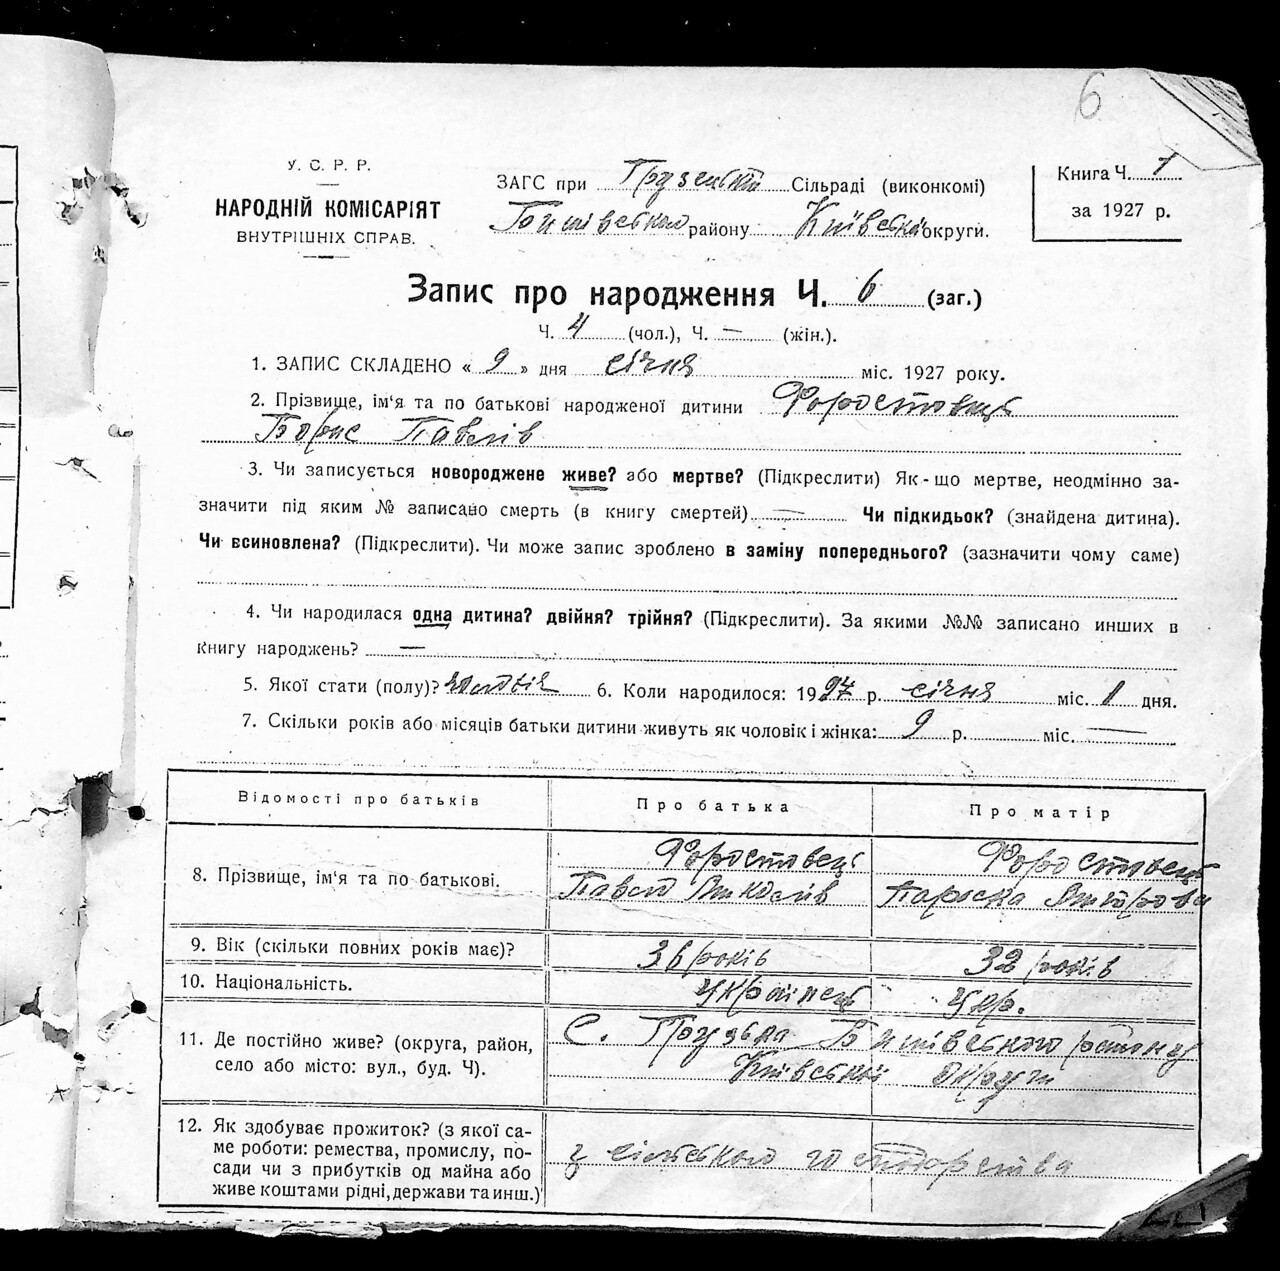 6
У. С. Р. Р.
НАРОДНІЙ КОМІСАРІЯТ
ВНУТРІШНІХ СПРАВ.
ЗАГС при Грузській Сільраді (виконкомі)
Бишівського району Київської округи.
Книга Ч. 1
за 1927 р.
Запис про народження Ч. 6 (заг.)
Ч. 4 (чол.), Ч. — (жін.).
1. ЗАПИС СКЛАДЕНО « 9 » дня січня міс. 1927 року.
2. Прізвище, ім'я та по батькові народженої дитини Форостовець
Борис Павлів
3. Чи записується новороджене живе? або мертве? (Підкреслити) Як-що мертве, неодмінно за-
значити під яким № записано смерть (в книгу смертей) — Чи підкидьок? (знайдена дитина).
Чи всиновлена? (Підкреслити). Чи може запис зроблено в заміну попереднього? (зазначити чому саме)
4. Чи народилася одна дитина? двійня? трійня? (Підкреслити). За якими №№ записано инших в
Книгу народжень? —
5. Якої стати (полу)? 6. Коли народилося: 1927 р. січня міс. 1 дня.
7. Скільки років або місяців батьки дитини живуть як чоловік і жінка: 9 р. міс. —
Відомості про батьків Про батька Про матір
8. Прізвище, ім'я та по батькові. Форостовець Форостовець
Павло Миколів Параска
9. Вік (скільки повних років має)? 36 років 32 років
10. Національність. Українець Укр.
11. Де постійно живе? (округа, район,
село або місто: вул., буд. Ч).
С. Грузька Бишівського району
Київській округи
12. Як здобуває прожиток? (з якої са-
ме роботи: ремества, промислу, по-
сади чи з прибутків од майна або
живе коштами рідні, держави та инш.)
з сільського господарства